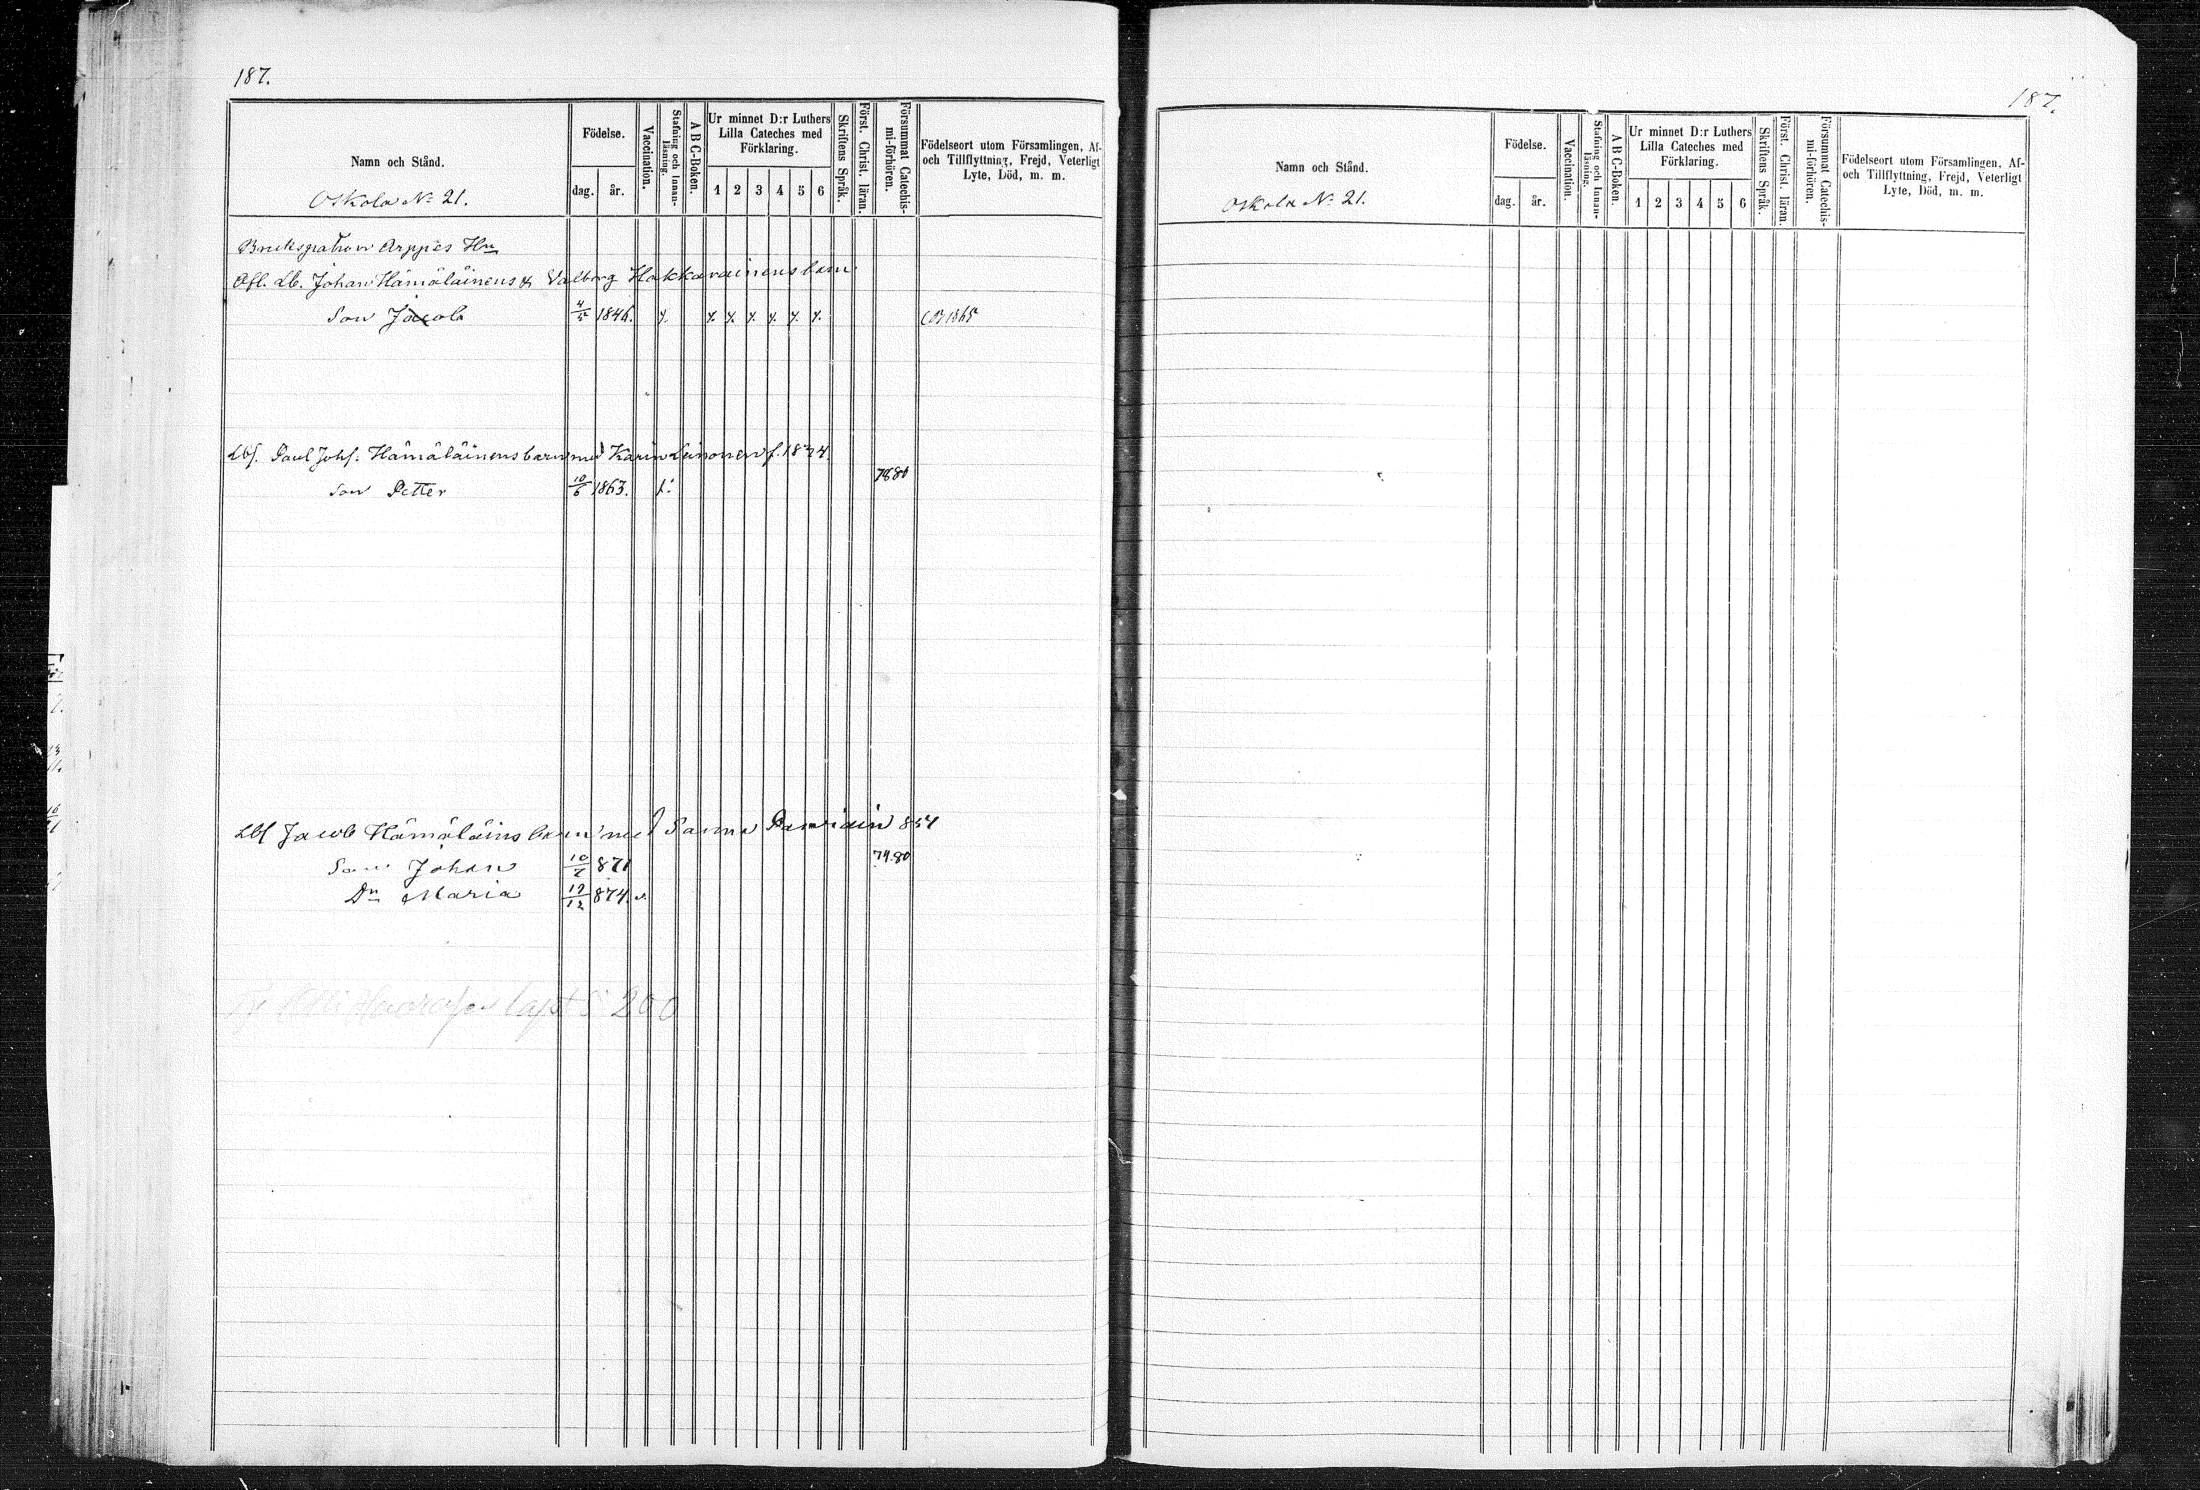 187.
Namn och Stånd.
Oskola No 21.
Födelse.
dag. år.
Vaccination.
Stafning och Innan-
läsning.
A B C-Boken.
Ur minnet D:r Luthers
Lilla Cateches med
Förklaring.
1 2 3 4 5 6
Skriftens Språk.
Först. Christ. läran.
Försummat Catechis-
mi-förhören.
Födelseort utom Församlingen, Af-
och Tillflyttning, Frejd, Veterligt
Lyte, Död, m. m.
Bruckspatron Arppes Hn
Afl. Lb. Johan Hämäläinens & Valborg Hakkarainens barn
Son Jacob 4/5 1846. x x x x x x x 1865
Lbf. Paul Johs. Hämäläinens barn med Karin Leinonen f. 1834.
Son Petter 10/6 1863. 78 80
Lbf Jacob Hämäläins barn med Sanna 854
Son Johan 10/7 871 79.80
Dn Maria 19/12 874. v.
200
187.
Namn och Stånd.
Oskola No 21.
Födelse.
dag. år.
Vaccination.
Stafning och Innan-
läsning.
A B C-Boken.
Ur minnet D:r Luthers
Lilla Cateches med
Förklaring.
1 2 3 4 5 6
Skriftens Språk.
Först. Christ. läran.
Försummat Catechis-
mi-förhören.
Födelseort utom Församlingen, Af-
och Tillflyttning, Frejd, Veterligt
Lyte, Död, m. m.